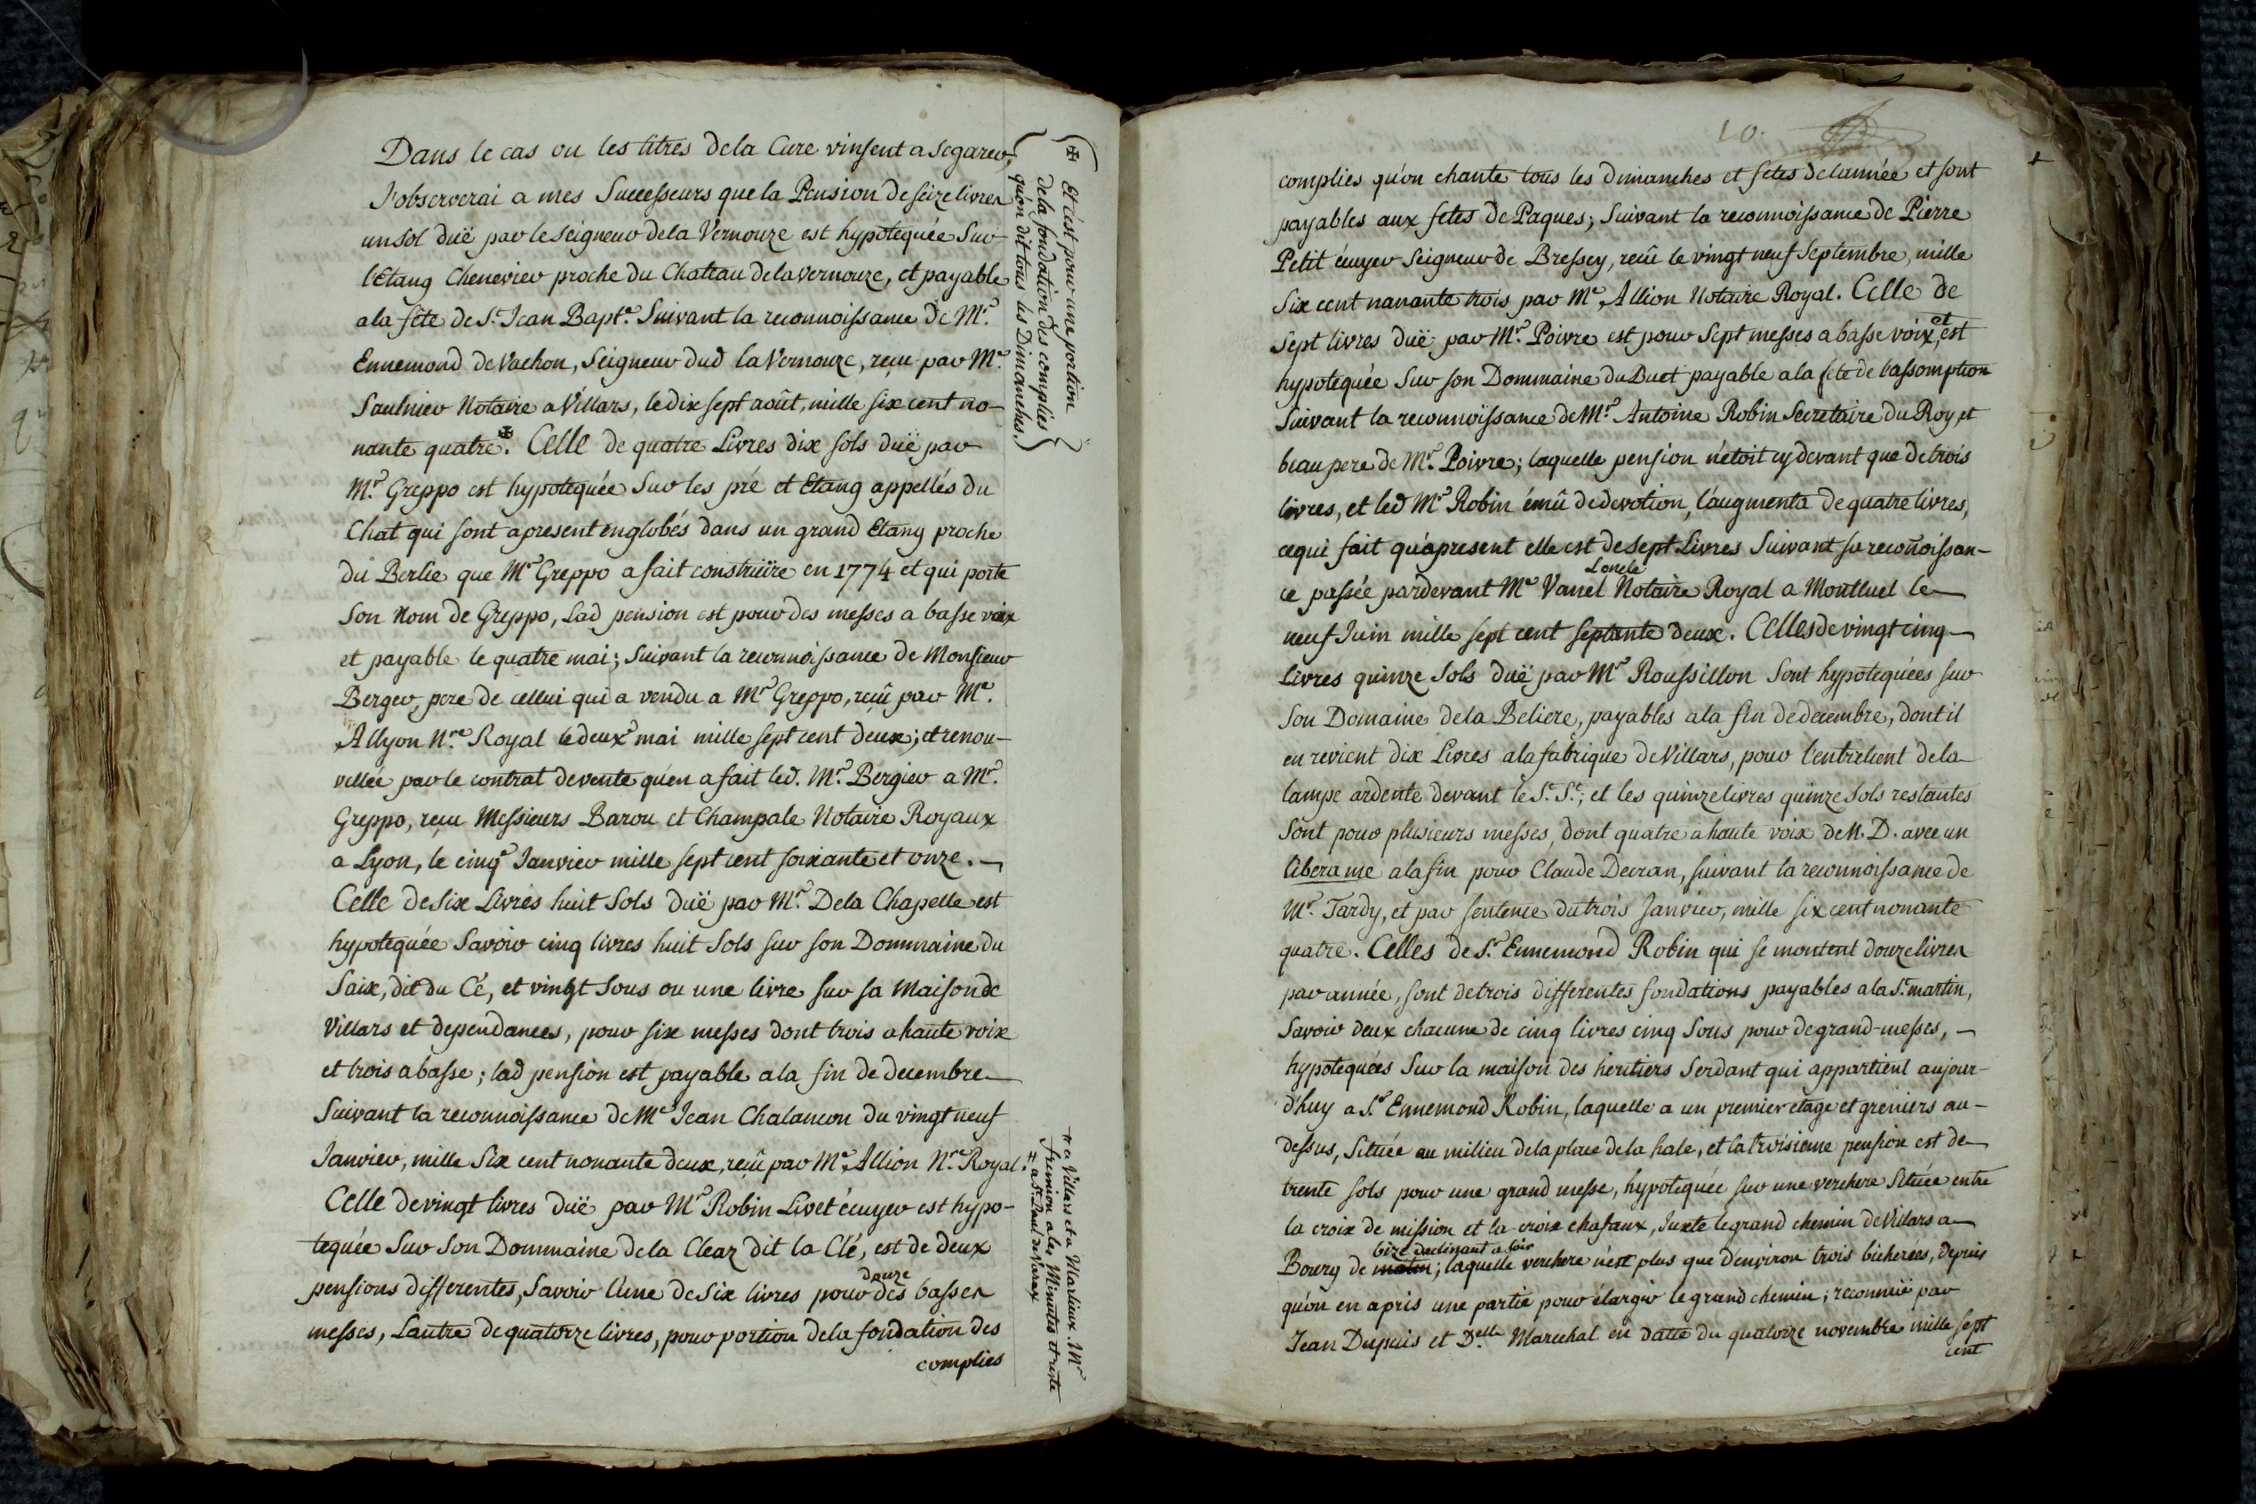 Dans le cas ou les titres de la Cure vinsent a segarer,
J'observerai a mes Successeurs que la Pension de seize livres
un sol duë par le seigneur de la Vernouze est hypotequée Sur
l'Etang Chenevier proche du Chateau de la vernouze, et payable
a la fete de St. Jean Bapt.e Suivant la reconnoissance de Mr.
Ennemond de Vachon, Seigneur dud la Vernouze, reçu par Me.
Saulnier Notaire a Villars, le dix sept août, mille six cent no-
nante quatre ✠. Celle de quatre Livres dix sols duë par
Mr. Greppo est hypotequée Sur les pré et Etang appellés du
Chat qui sont apresent englobés dans un grand Etang proche
du Berlie que Mr. Greppo a fait construire en 1774 et qui porte
Son Nom de Greppo, Lad pension est pour des messes a basse voix
et payable le quatre mai; Suivant la reconnoissance de Monsieur
Berger, pere de cellui qui a vendu a Mr. Greppo, reçû par Me.
Allyon N.re Royal le deuxe mai mille sept cent deux; et renou-
vellée par le contrat de vente qu'en a fait led. Mr. Bergier a Mr.
Greppo, reçu Messieurs Barou et Champale Notaire Royaux
a Lyon, le cinqe Janvier mille sept cent soixante et onze. —
Celle de Six Livres huit Sols duë par Mr. De la Chapelle est
hypotequée Savoir cinq livres huit Sols sur son Dommaine du
Saix, dit du Cé, et vingt Sous ou une livre sur sa Maison de
Villars et dependances, pour six messes dont trois a haute voix
et trois a basse; lad pension est payable a la fin de decembre —
Suivant la reconnoissance de Me Jean Chalancon du vingt neuf
Janvier, mille Six cent nonante deux, reçû par Me. Allion N.re Royal.
Celle de vingt livres duë par Mr. Robin Livet écuyer est hypo-
tequée Sur Son Dommaine de la Cleaz dit la Clé, est de deux
pensions differentes, Savoir l'une de Six livres pour des douze basses
messes, Lautre de quatorze livres, pour portion de la fondation des
complies
✠ Et c'est pour une portion
de la fondation des complies
qu'on dit tous les Dimanches.
# a Villars et a Marlieux. Mr
Fremion a les Minutes et reste
# a St. Paul de Varax
10.
complies qu'on chante tous les dimanches et fetes de l'année et sont
payables aux fetes de Paques; Suivant la reconnoissance de Pierre
Petit écuyer Seigneur de Bressey, reçû le vingt neuf Septembre, mille
Six cent nanante trois par Me. Allion Notaire Royal. Celle de
sept livres duë par Mr. Poivre est pour Sept messes a basse voix, et est
hypotequée Sur son Dommaine du Buet payable a la fete de l'assomption
Suivant la reconnoissance de Mr. Antoine Robin Secretaire du Roy, et
beau pere de Mr. Poivre; laquelle pension n'etoit cy devant que de trois
livres, et led Mr. Robin émû de devotion, l'augmenta de quatre livres,
ce qui fait qu'apresent elle est de sept Livres Suivant sa reconoissan-
ce passée pardevant Me Vanel Loncle Notaire Royal a Montluel le —
neuf Juin mille sept cent septante deux. Celles de vingt cinq —
Livres quinze Sols duë par Mr. Roussillon Sont hypotequées sur
Son Domaine de la Beliere, payables a la fin de decembre, dont il
en revient dix Livres a la fabrique de Villars, pour l'entretient de la
lampe ardente devant le St. St.; et les quinze livres quinze Sols restantes
Sont pour plusieurs messes, dont quatre a haute voix de N. D. avec un
libera me a la fin pour Claude Decran, suivant la reconnoissance de
Mr. Tardy, et par sentence du trois Janvier, mille six cent nonante
quatre. Celles de Sr. Ennemond Robin qui se montent douze livres
par année, sont de trois differentes fondations payables a la St. martin,
Savoir deux chacune de cinq livres cinq Sous pour de grand-messes, —
hypotequées Sur la maison des heritiers Serdant qui appartient aujour-
d'huy a Sr. Ennemond Robin, laquelle a un premier etage et greniers au-
dessus, Située au milieu de la place de la hale, et la troisieme pension est de —
trente sols pour une grand messe, hypotequée sur une verchere Située entre
la croix de mission et la croix chafaux, Juxte le grand chemin de Villars a —
Bourg de matin bize declinant a soir; laquelle verchere n'est plus que d'environ trois bicherées, depuis
qu'on en a pris une partie pour élargir le grand chemin; reconnuë par
Jean Dupuis et D.elle Marechal en datte du quatorze novembre mille sept
cent